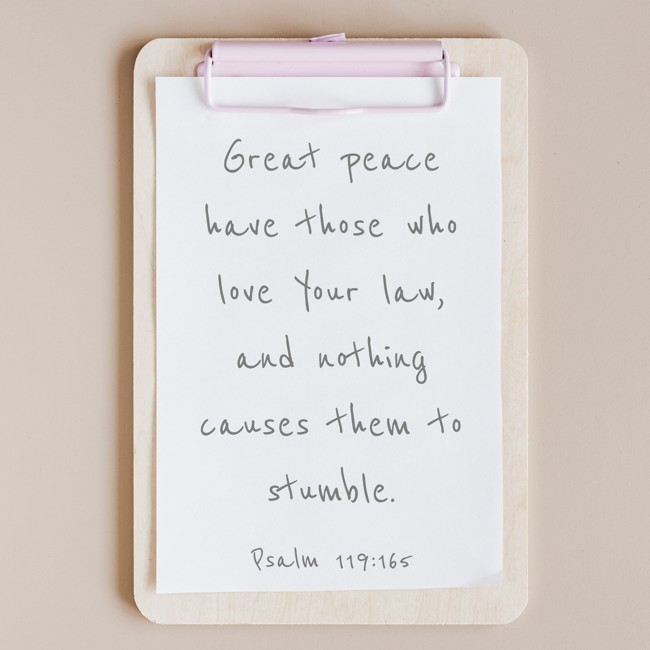 Great peace
have those who
love Your law,
and nothing
causes them to
stumble.
Psalm 119:165